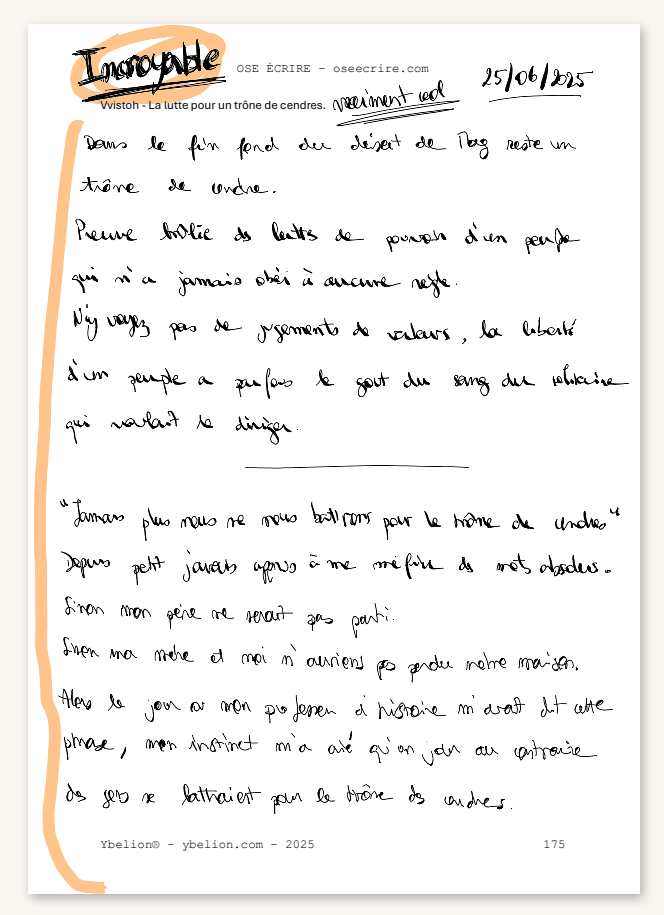 Incroyable
OSE ÉCRIRE – oseecrire.com
25/06/2025
Vvistoh - La lutte pour un trône de cendres.
vraiment cool
Dans le fin fond du désert de reste un
trône de cendre.
Preuve brûlée des luttes de pouvoir d'un peuple
qui n'a jamais obéi à aucune règle.
N'y voyez pas de jugements de valeurs, la liberté
d'un peuple a parfois le gout du sang du
qui voulait le diriger.
"Jamais plus nous ne nous battrons pour le trône de cendres"
Depuis petit j'avais appris à me méfier des mots absolus.
Sinon mon père ne serait pas parti.
Sinon ma mère et moi n'aurions pas perdu notre maison.
Alors le jour où mon professeur d'histoire m'avait dit cette
phrase, mon instinct m'a crié qu'un jour au contraire
des gens se battraient pour le trône des cendres.
Ybelion® – ybelion.com – 2025
175